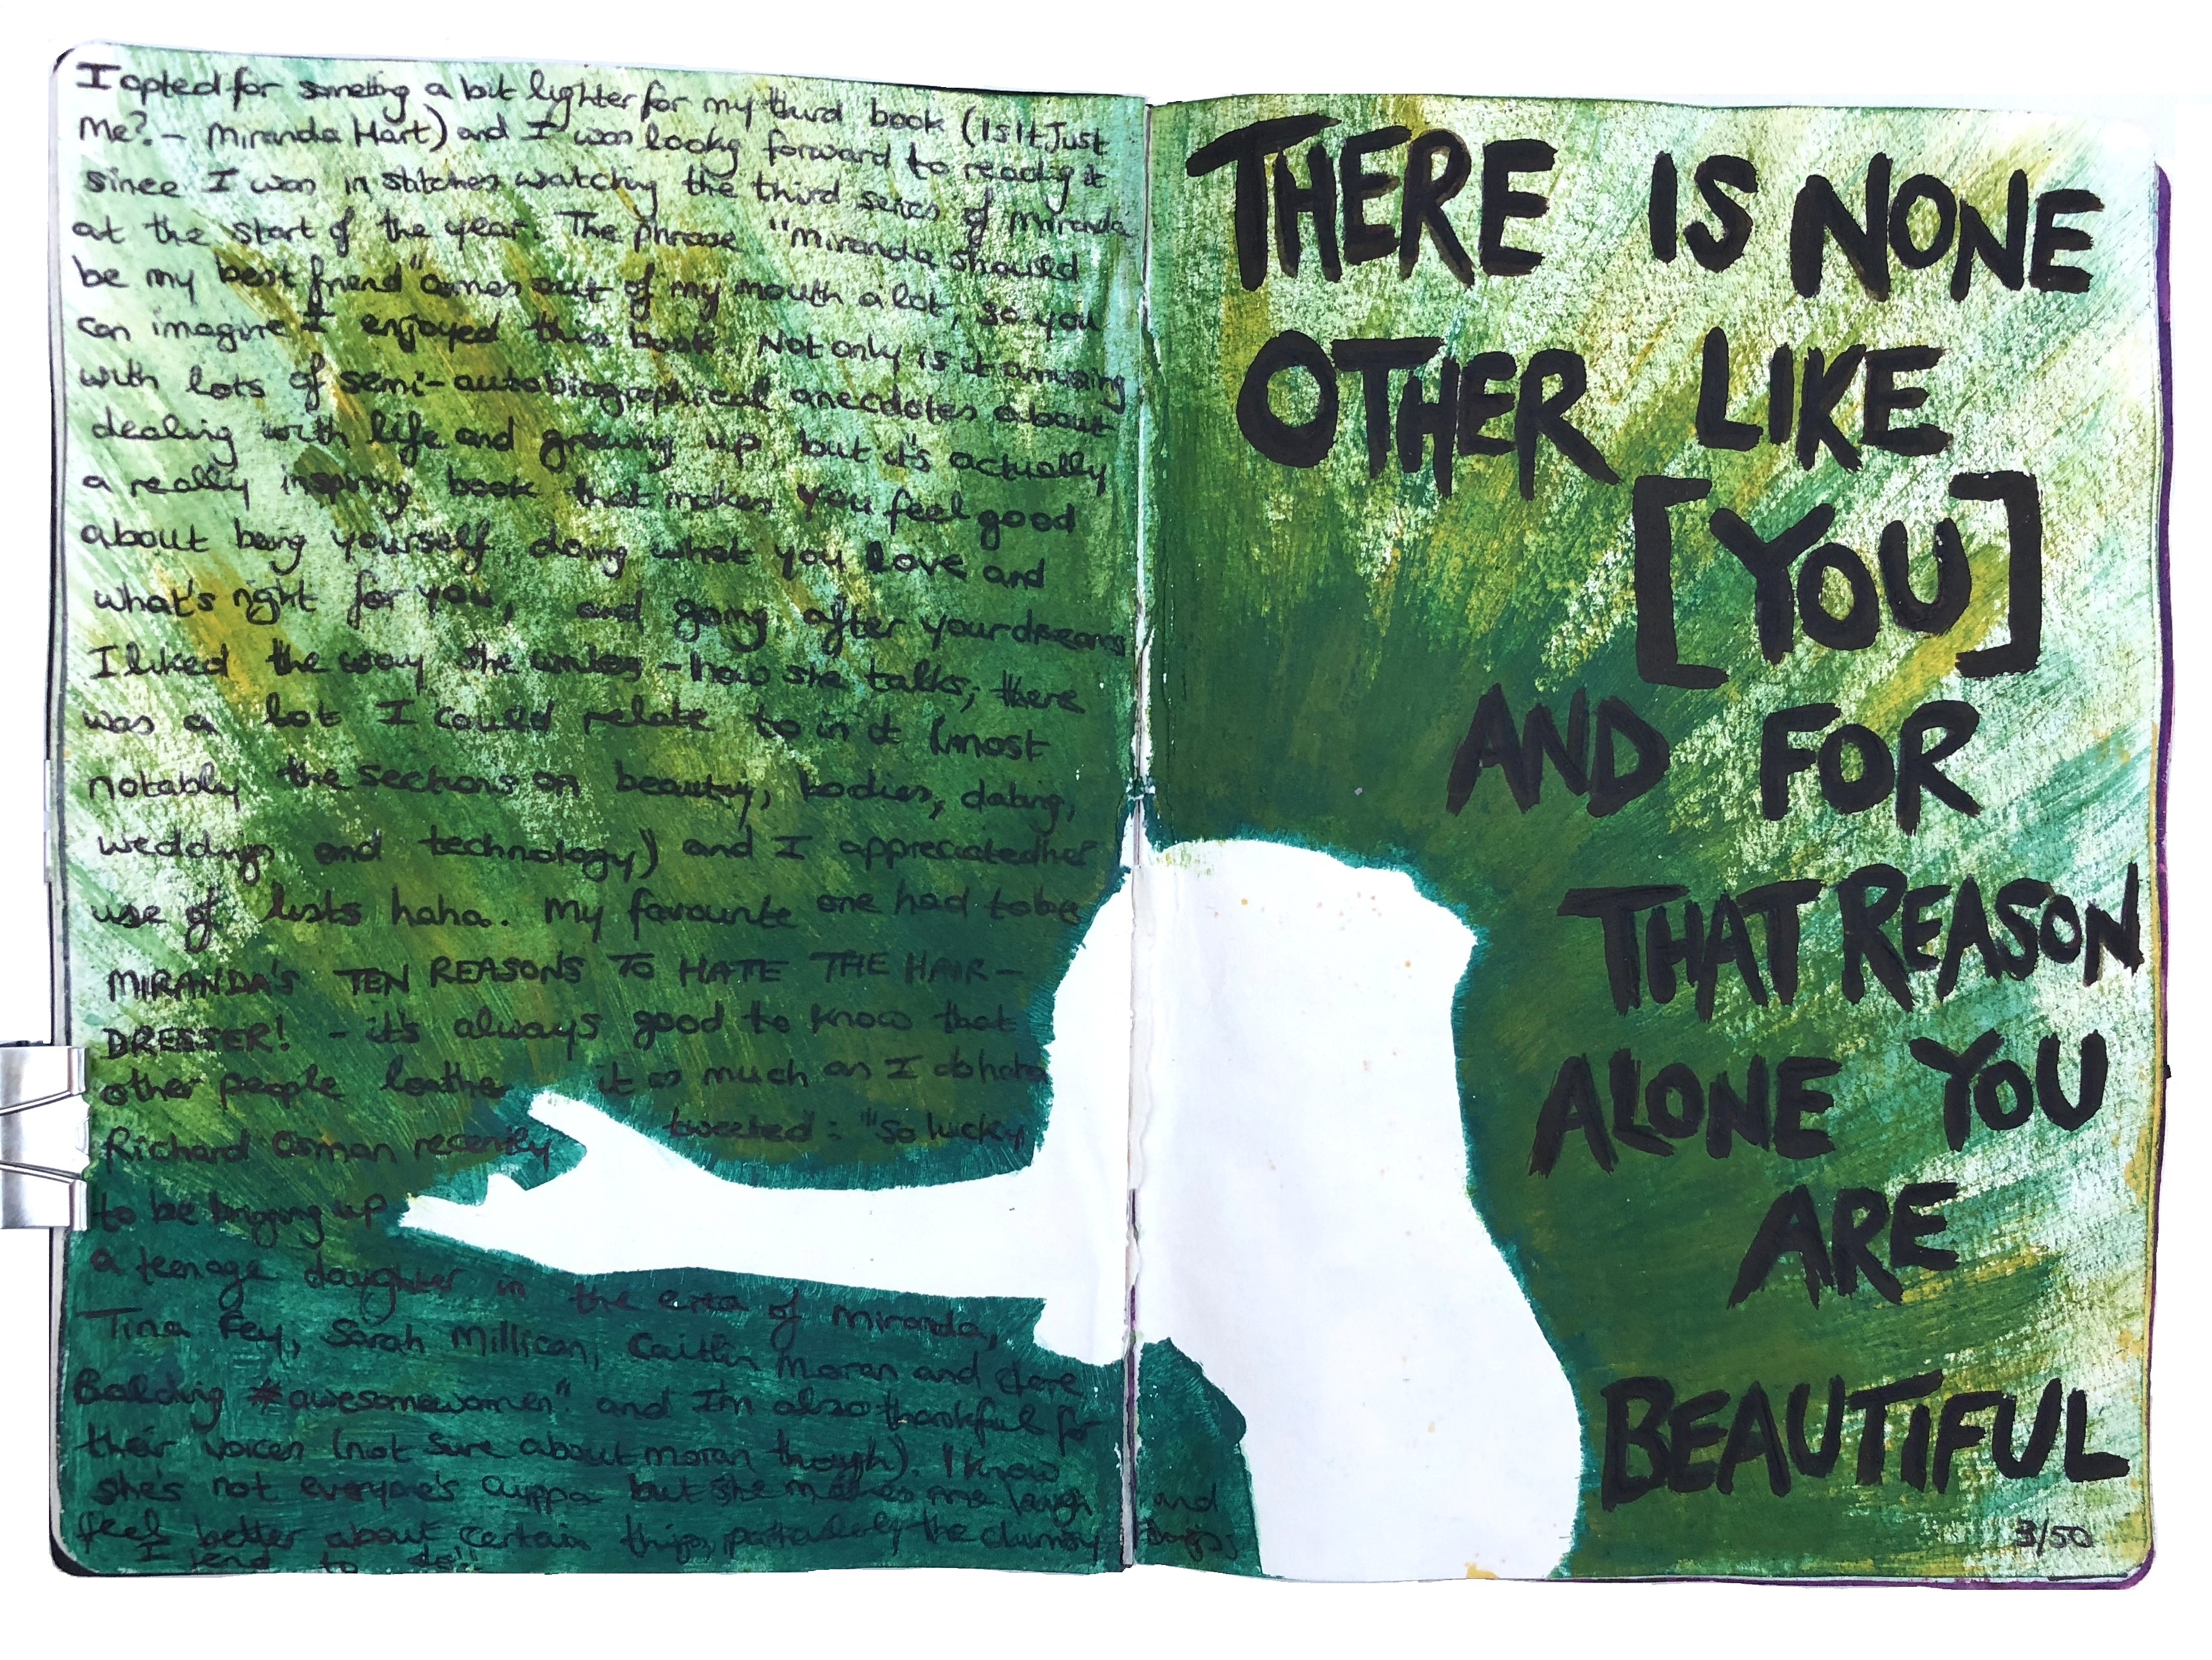 I opted for something a bit lighter for my third book (Is It Just
Me? - Miranda Hart) and I was looking forward to reading it
since I was in stitches watching the third series of Miranda
at the start of the year. The phrase "Miranda should
be my best friend" comes out of my mouth a lot, so you
can imagine I enjoyed this book. Not only is it amusing
with lots of semi-autobiographical anecdotes about
dealing with life and growing up, but it's actually
a really inspiring book that makes you feel good
about being yourself, doing what you love and
what's right for you, and going after your dreams.
I liked the way she writes - how she talks; there
was a lot I could relate to in it (most
notably the sections on beauty, bodies, dating,
weddings and technology) and I appreciated her
use of lists haha. My favourite one had to be
MIRANDA'S TEN REASONS TO HATE THE HAIR-
DRESSER! - it's always good to know that
other people loathe it as much as I do haha
Richard Osman recently tweeted: "So lucky
to be bringing up
a teenage daughter in the era of Miranda,
Tina Fey, Sarah Millican, Caitlin Moran and Clare
Balding #awesomewomen" and I'm also thankful for
their voices (not sure about Moran though). I know
she's not everyone's cuppa but she makes me laugh and
feel better about certain things, particularly the clumsy things
I tend to do!!
THERE IS NONE
OTHER LIKE
[YOU]
AND FOR
THAT REASON
ALONE YOU
ARE
BEAUTIFUL
3/50